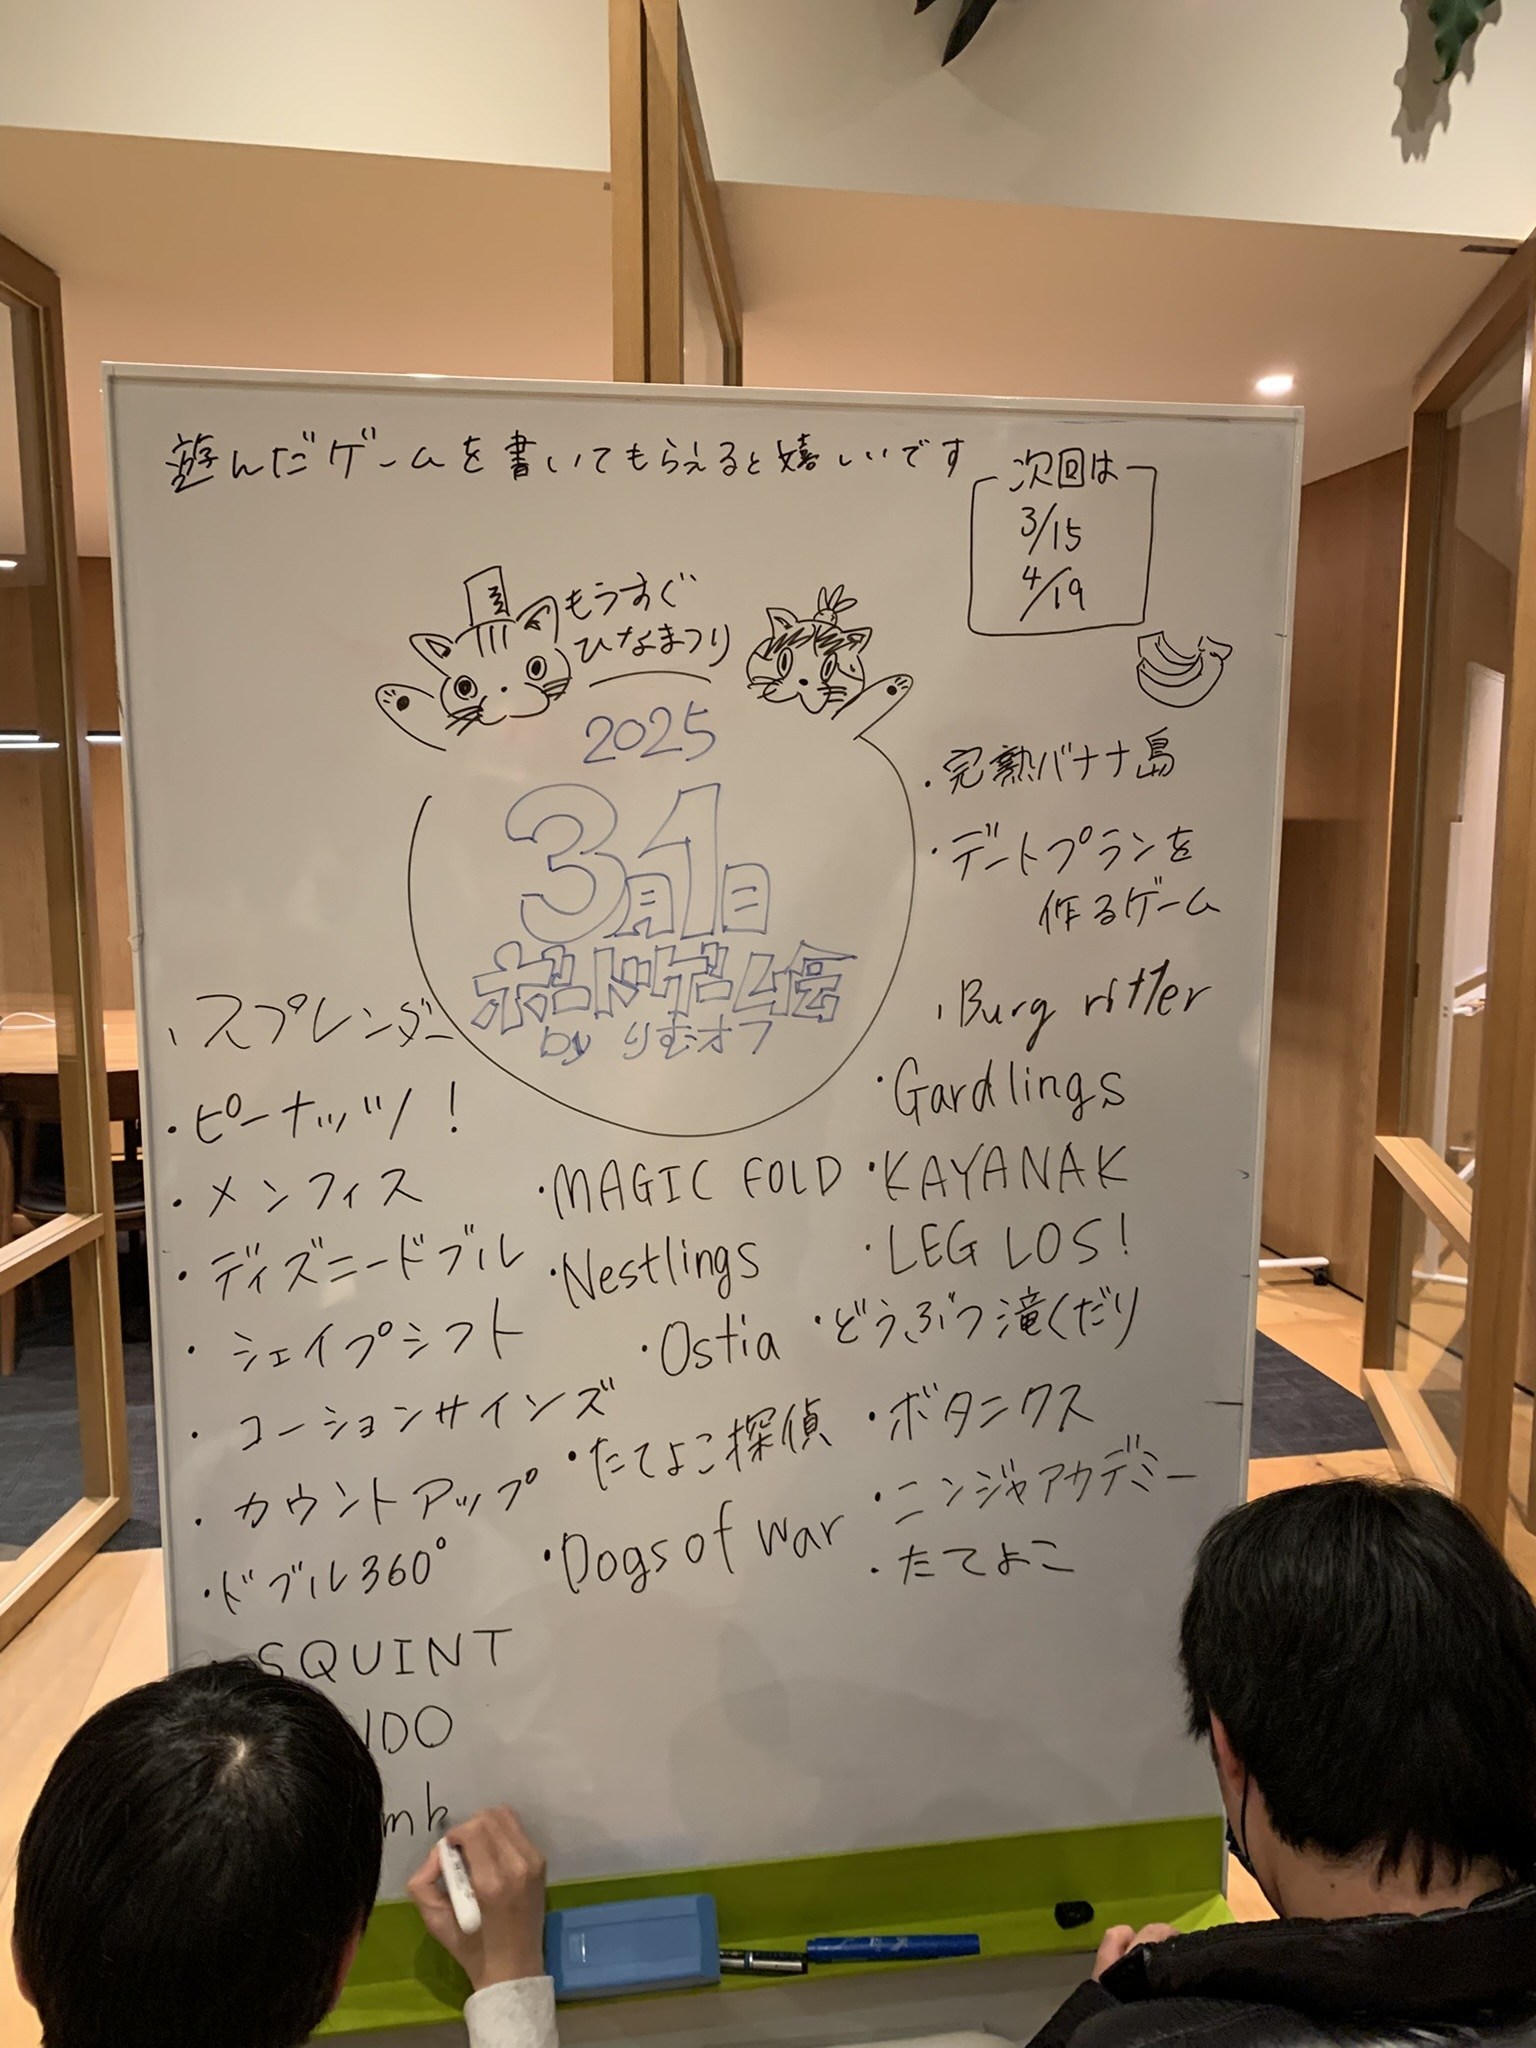 遊んだゲームを書いてもらえると嬉しいです
次回は
3/15
4/19
もうすぐ
ひなまつり
2025
3月1日
ボードゲーム会
by りむオフ
・スプレンダー
・ピーナッツ!
・メンフィス
・ディズニードブル
・シェイプシフト
・コーションサインズ
・カウントアップ
・ドブル360°
SQUINT
・MAGIC FOLD
・Nestlings
・Ostia
・たてよこ探偵
・Dogs of war
・完熟バナナ島
・デートプランを
作るゲーム
・Burg ritter
・Gardlings
・KAYANAK
・LEG LOS!
・どうぶつ滝くだり
・ボタニクス
・ニンジャアカデミー
・たてよこ